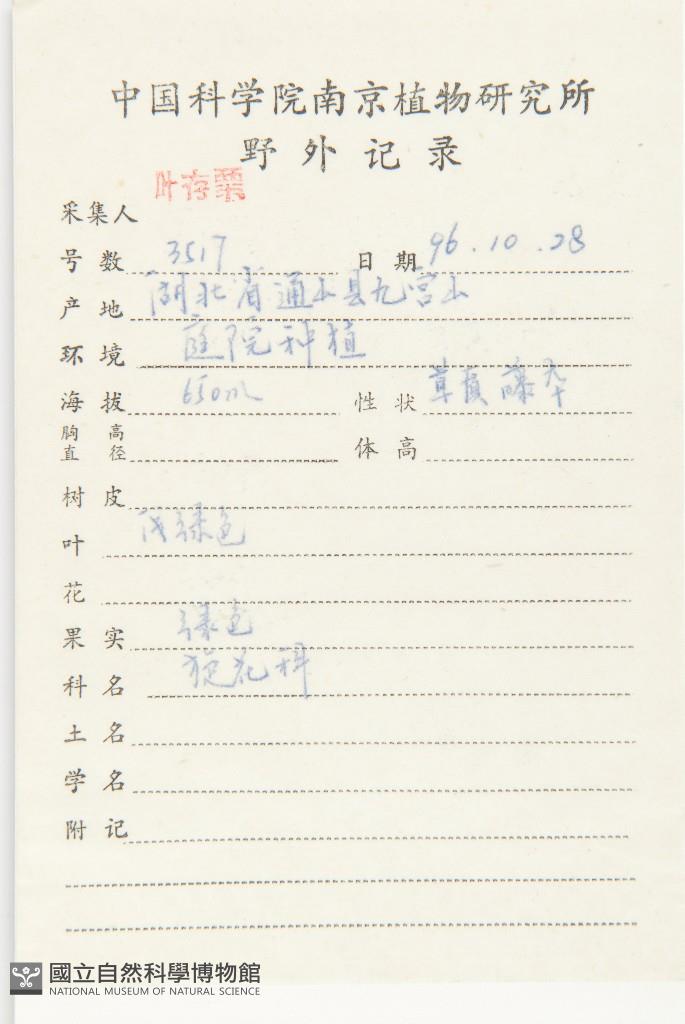 中国科学院南京植物研究所
野外记录
采集人 叶存粟
号数 3517 日期 96.10.28
产地 湖北省通山县九宫山
环境 庭院种植
海拔 650m 性状 草质藤本
胸高直径 体高
树皮
叶 浅绿色
花
果实 绿色
科名 旋花科
土名
学名
附记
國立自然科學博物館
NATIONAL MUSEUM OF NATURAL SCIENCE